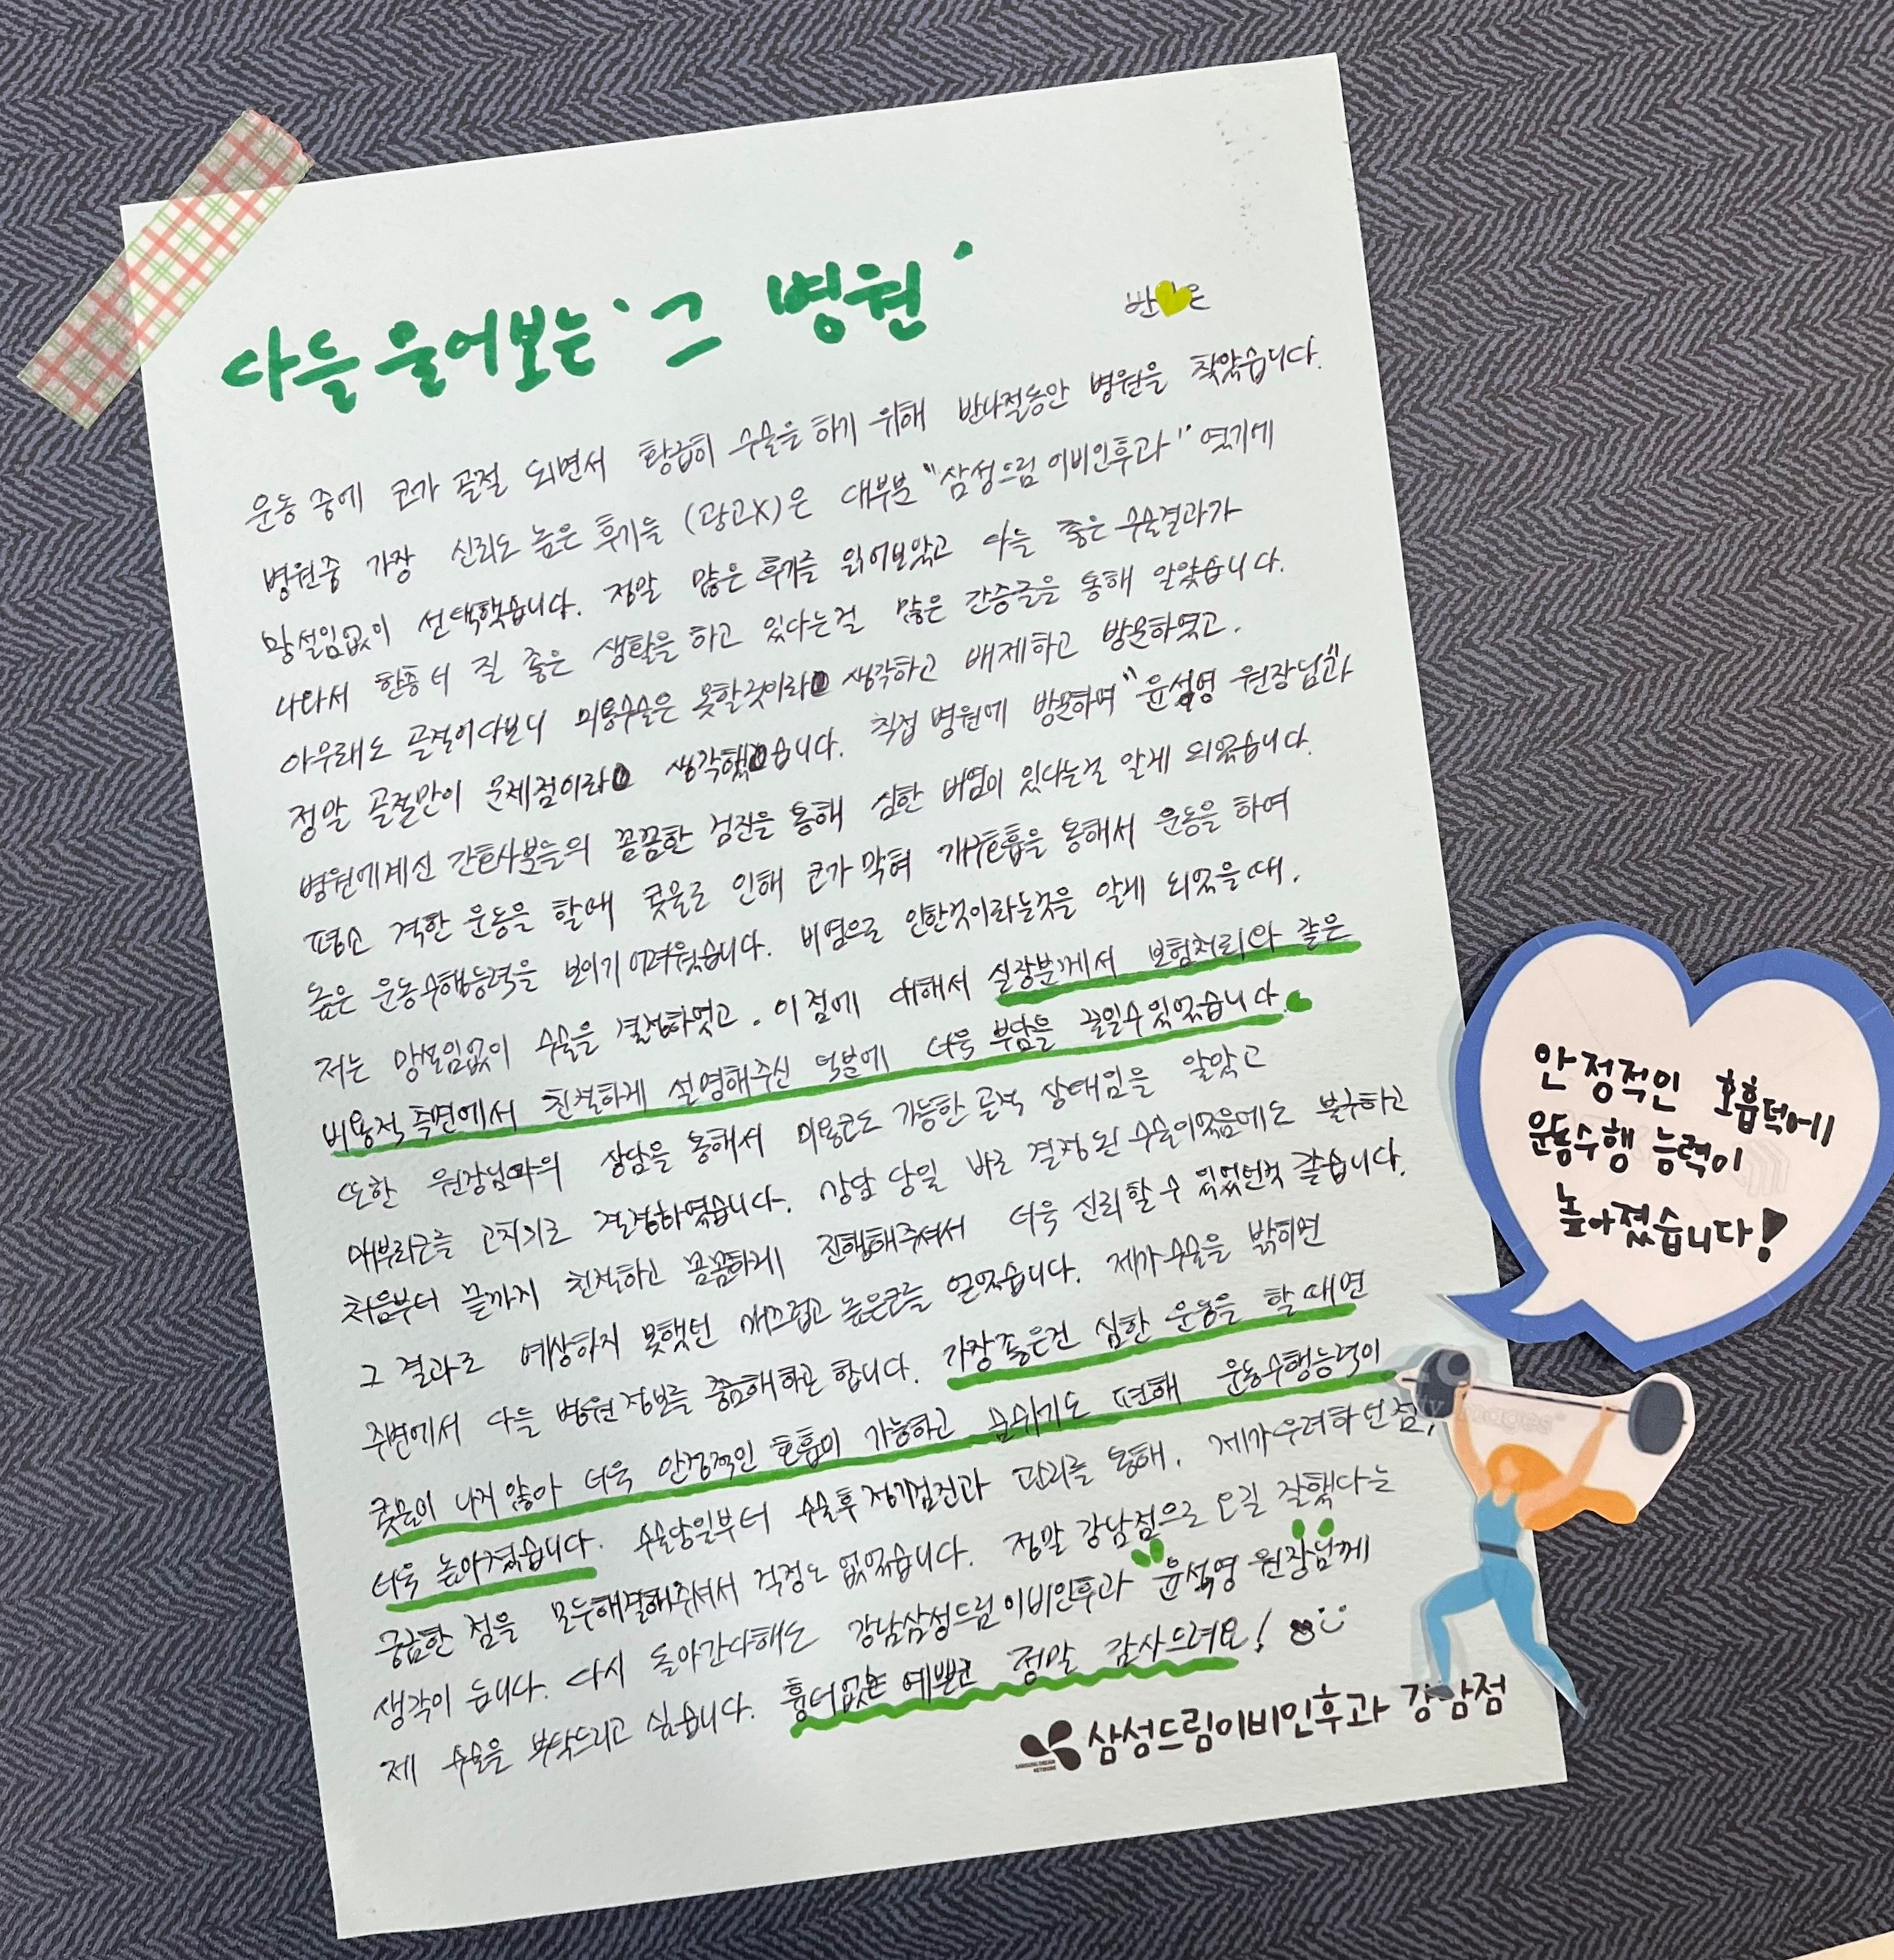 다들 물어보는 '그 병원'
반 은
운동 중에 코가 골절 되면서 황급히 수술을 하기 위해 반나절동안 병원을 찾았습니다.
병원중 가장 신뢰도 높은 후기들 (광고X)은 대부분 "삼성드림 이비인후과" 였기에
망설임없이 선택했습니다. 정말 많은 후기를 읽어보았고 다들 좋은 수술결과가
나와서 한층 더 질 좋은 생활을 하고 있다는걸 많은 간증글을 통해 알았습니다.
아무래도 골절이다보니 미용수술은 못할것이라 생각하고 배제하고 방문하였고.
정말 골절만이 문제점이라 생각했습니다. 직접 병원에 방문하며 "윤석영 원장님"과
병원에계신 간호사분들의 꼼꼼한 검진을 통해 심한 비염이 있다는걸 알게 되었습니다.
평소 격한 운동을 할때 콧물로 인해 코가 막혀 개구호흡을 통해서 운동을 하여
높은 운동수행능력을 보이기 어려웠습니다. 비염으로 인한것이라는것을 알게 되었을때.
저는 망설임없이 수술을 결정하였고. 이점에 대해서 실장분께서 보험처리와 같은
비용적 측면에서 친절하게 설명해주신 덕분에 더욱 부담을 끌일수있었습니다.
또한 원장님과의 상담을 통해서 미용코도 가능한 골절 상태임을 알았고
매부리코를 고치기로 결정하였습니다. 상담 당일 바로 결정된 수술이었음에도 불구하고
처음부터 끝까지 친절하고 꼼꼼하게 진행해주셔서 더욱 신뢰할수 있었던것 같습니다.
그 결과로 예상하지 못했던 매끄럽고 높은코를 얻었습니다. 제가수술을 밝히면
주변에서 다들 병원정보를 궁금해하곤 합니다. 가장좋은건 심한 운동을 할때면
콧물이 나지 않아 더욱 안정적인 호흡이 가능하고 숨쉬기도 편해 운동수행능력이
더욱 높아졌습니다. 수술당일부터 수술후 정기검진과 관리를 통해. 제가우려하던점,
궁금한 점을 모두해결해주셔서 걱정도 없었습니다. 정말 강남점으로 오길 잘했다는
생각이 듭니다. 다시 돌아간다해도 강남삼성드림이비인후과 윤석영 원장님께
제 수술을 부탁드리고 싶습니다. 흉터없는 예쁜코 정말 감사드려요!
삼성드림이비인후과 강남점
안정적인 호흡덕에
운동수행 능력이
높아졌습니다!